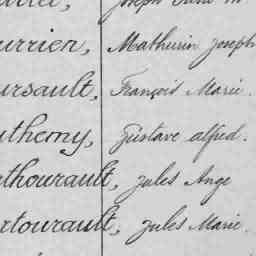 urrien, Mathurin Joseph
ursault, François Marie.
uthemy, Gustave alfred.
thourault, Jules Ange
rtourault, Jules Marie.